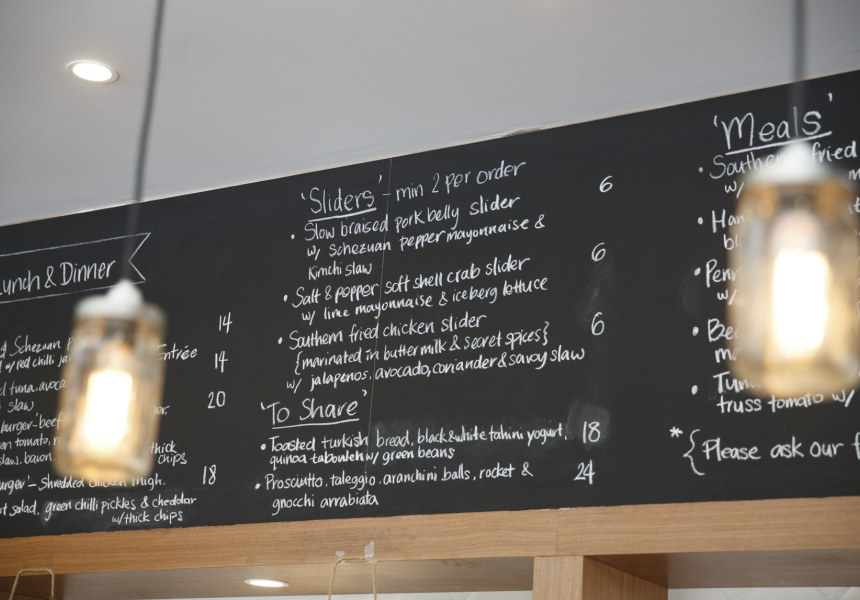 Lunch & Dinner
Schezuan 14
w/ red chilli Entrée 14
tuna, avoca
slaw 20
burger - beef
tomato, thick
slaw, bacon chips
urger' - Shredded chicken thigh, 18
salad, green chilli pickles & cheddar
w/ thick chips
'Sliders' - min 2 per order
• Slow braised pork belly slider 6
w/ Schezuan pepper mayonnaise &
Kimchi slaw
• Salt & pepper soft shell crab slider 6
w/ lime mayonnaise & iceberg lettuce
• Southern fried chicken slider 6
{marinated in buttermilk & secret spices}
w/ jalapenos, avocado, coriander & savoy slaw
'To Share'
• Toasted turkish bread, black & white tahini yogurt, 18
quinoa tabouleh w/ green beans
• Prosciutto, taleggio, aranchini balls, rocket & 24
gnocchi arrabiata
'Meals'
• Southern fried
w/
• Ha
bl
• Pen
w/
• Bee
• Tun
truss tomato w/
* {Please ask our f